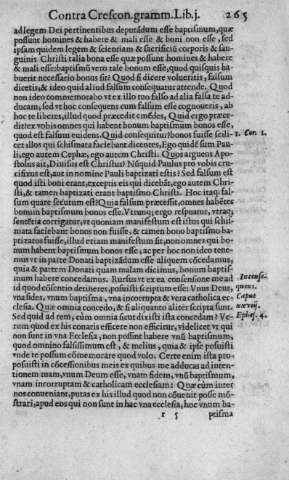 Contra Crescon. gramm. Lib. j. 265
ad legem Dei pertinentibus deputādum esse baptismum, quæ
possunt homines & habere & mali esse & boni non esse, sed
ipsam quidem legem & scientiam & sacrificiū corporis & san-
guinis Christi talia bona esse quæ possunt homines & habere
& mali esse: baptismū vero tale bonum esse, quod quisquis ha-
buerit necessario bonus sit? Quod si dicere volueritis, falsum
dicetis; & ideo quid aliud falsum consequatur attende. Quod
non ideo commemorabo vt ex illo tuo falso ad alia falsa te ad-
ducam, sed vt hoc consequens cum falsum esse cognoueris, ab
hoc te liberes, illud quod præcedit emēdes. Quid ergo præce-
dit? ex vobis omnes qui habent bonum baptismum bonos esse,
quod est falsum euidens. Quid consequitur? Bonos fuisse scili-
cet illos qui schismata faciebant dicentes, Ego quidē sum Pau- 1. Cor. 1.
li, ego autem Cephæ, ego autem Christi. Quos arguens Apo-
stolus ait, Diuisus est Christus? Nūquid Paulus pro vobis cru-
cifixus est, aut in nomine Pauli baptizati estis? Sed falsum est
quod isti boni erant, exceptis eis qui dicebāt, ego autem Chri-
sti, & tamen baptizati erant baptismo Christi. Hoc itaq; fal-
sum quare secutum est? Quia falsum præcessit, omnes habētes
bonum baptismum bonos esse. Vtrunq; ergo respuatur, vtraq;
sententia corrigatur, vt quoniam manifestum est istos qui schis-
mata faciebant bonos non fuisse, & tamen bono baptismo ba-
ptizatos fuisse, illud etiam manifestum sit, non omnes qui bo-
num habent baptismum bonos esse, ac per hoc non ideo vene-
mus vt in parte Donati baptizādum esse aliquem cōcedamus,
quia & parte m Donati quam malam dicimus, bonum baptis-
mum habere concedamus. Rursus vt ex ea consensione mea ad
id quod cōsentio detineres, posuisti scriptum esse. Vnus Deus,
vna fides, vnum baptisma, vna incorrupta & vera catholica ec-
clesia. Quæ omnia concedo, & si aliquanto aliter scripta sunt.
Sed quid ad rem, cùm omnia sicut dixisti ista concedam? Ve- Ephes. 4.
rum quod ex his conaris efficere non efficitur, videlicet vt qui
non sunt in vna Ecclesia, non possint habere vnū baptismum,
quod omnino falsissimum est, & melius, quia & ipse posuisti
vnde te possum cōmemorare quod volo. Certe enim ista pro-
posuisti in cōcessionibus meis ex quibus me adducas ad inten-
tionem tuam, vnum Deum esse, vnam fidem, vnū baptismum,
vnam incorruptam & catholicam ecclesiam: Quæ cùm inter
nos conueniant, putas ex his illud quod non cōuenit posse mō-
strari, apud eos qui non sunt in hac vna ecclesia, hoc vnum ba-
r 5 ptisma